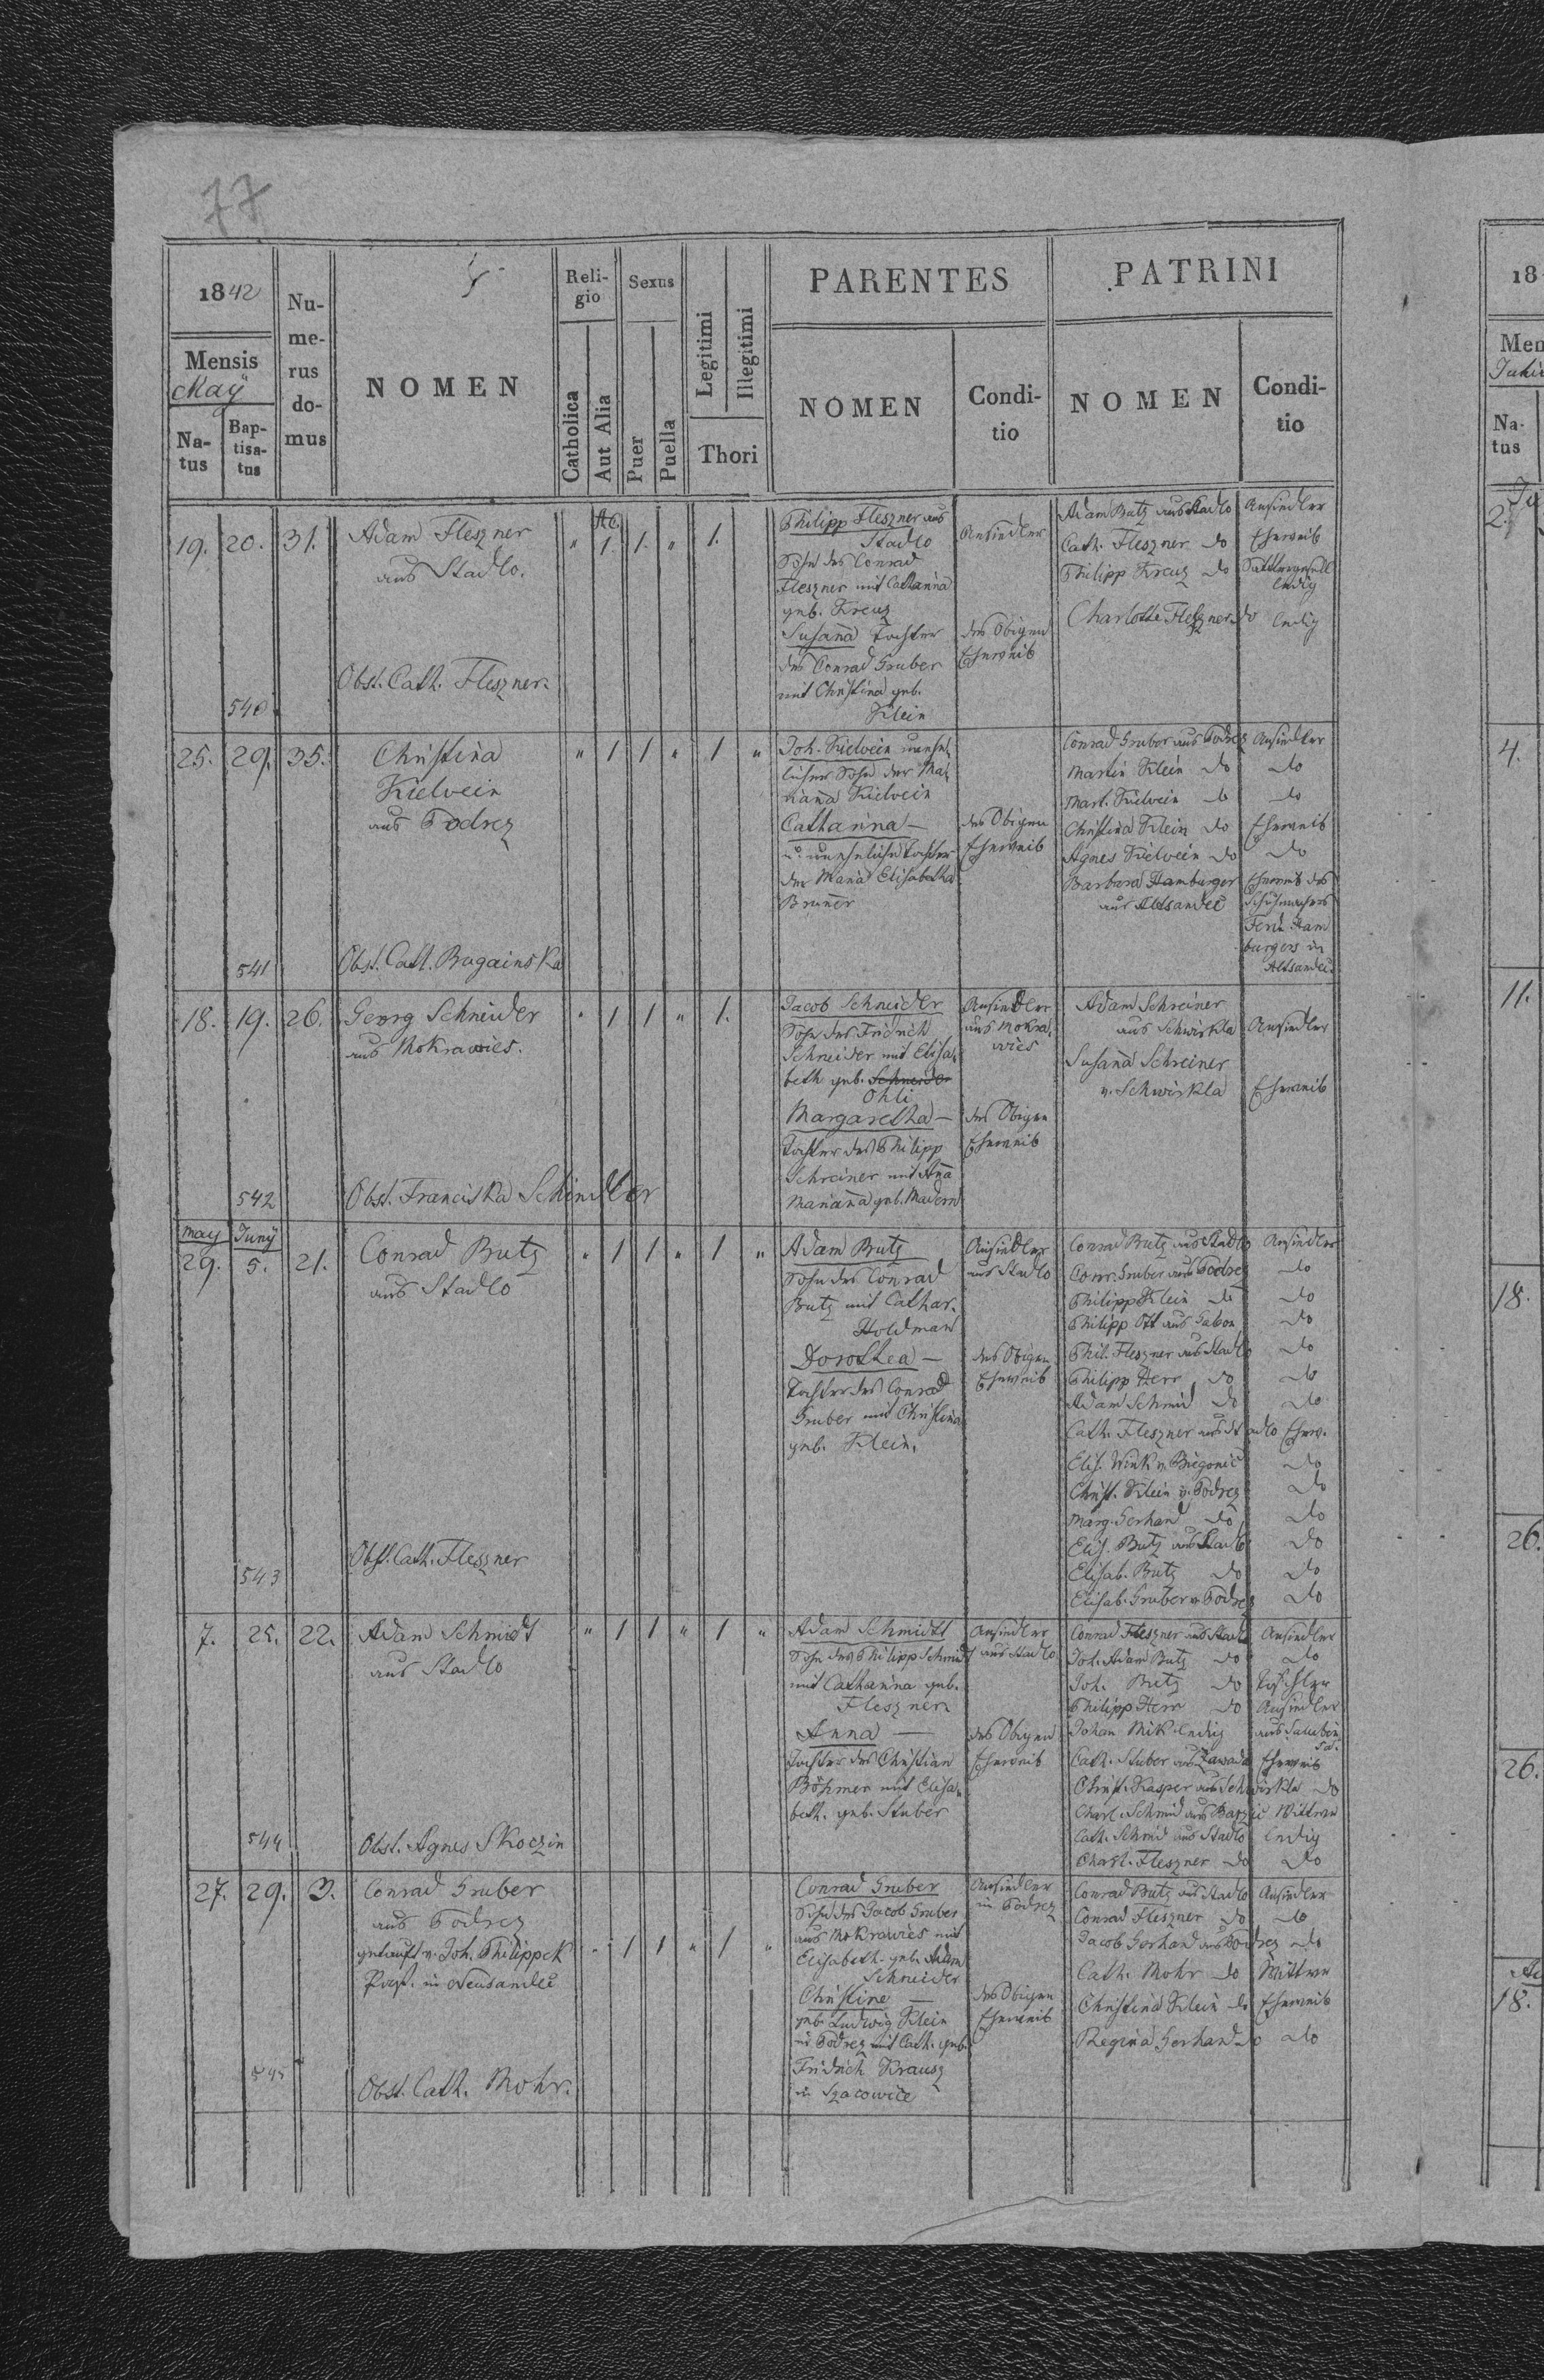 77
1842
Mensis
May
Na-
tus
Bap-
tisa-
tus
Nu-
me-
rus
do-
mus
NOMEN
Reli-
gio
Catholica
Aut Alia
Sexus
Puer
Puella
Legitimi
Illegitimi
Thori
PARENTES
NOMEN
Condi-
tio
PATRINI
NOMEN
Condi-
tio
19. 20. 31.
Adam Fleszner
aus Stadlo.
Obst. Cath. Fleszner.
540
A.C.
" 1. 1. " 1.
Philipp Fleszner aus
Stadlo
Sohn des Conrad
Fleszner mit Catharina
geb. Kreuz
Susana Tochter
des Conrad Gruber
mit Christina geb.
Klein
Ansiedler
des Obigen
Eheweib
Adam Butz aus Stadlo Ansiedler
Cath. Fleszner do Eheweib
Philipp Kreuz do
ledig
Charlotte Fleszner do ledig
25. 29. 35.
Christina
Kielwein
aus Podrez
Obst. Cath. Bugainska
541
" 1 1 " 1 "
Joh. Kielwein unehe
licher Sohn der Ma
riana Kielwein
Catharina —
unehliche Tochter
der Maria Elisabetha
Bruner
des Obigen
Eheweib
Conrad Gruber aus Podrez Ansiedler
Martin Klein do do
Mart. Kielwein do do
Christina Klein do Eheweib
Agnes Kielwein do do
Barbara Hamburger Eheweib des
aus Altsandec Schuhmachers
Ferd. Ham
burgers in
Altsandec
18. 19. 26.
Georg Schneider
aus Mokrawies.
Obst. Franciska Schindler
542
" 1 1 " 1.
Jacob Schneider
Sohn des Fridrich
Schneider mit Elisa
beth geb. Schneider
Ohli
Margaretha —
Tochter des Philipp
Schreiner mit Ana
Mariana geb. Madern
Ansiedler
aus Mokra
wies
des Obigen
Eheweib
Adam Schreiner
aus Schwirkla Ansiedler
Susana Schreiner
v. Schwirkla Eheweib
May Juny
29. 5. 21.
Conrad Butz
aus Stadlo
Obst. Cath. Fleszner
543
" 1 1 " 1 "
Adam Butz
Sohn des Conrad
Butz mit Cathar.
Holdman
Dorothea —
Tochter des Conrad
Gruber mit Christina
geb. Klein.
Ansiedler
aus Stadlo
des Obigen
Eheweib
Conrad Butz aus Stadlo Ansiedler
Conr. Gruber aus Podrez do
Philipp Klein do do
Philipp Ott aus Gabon do
Phil. Fleszner aus Stadlo do
Philipp Herr do do
Adam Schmid do do
Cath. Fleszner aus Stadlo Ehew.
Elis. Wink v. Biegonic do
Christ. Klein v. Podrez do
Marg. Gerhard do do
Elis. Butz aus Stadlo do
Elisab. Butz do do
Elisab. Gruber v. Podrez do
7. 25. 22.
Adam Schmidt
aus Stadlo
Obst. Agnes Skoczin
544
" 1 1 " 1 "
Adam Schmidt
Sohn des Philipp Schmidt
mit Catharina geb.
Fleszner
Anna —
Tochter des Christian
Böhmer mit Elisa
beth. geb. Stuber
Ansiedler
aus Stadlo
des Obigen
Eheweib
Conrad Fleszner aus Stadlo Ansiedler
Joh. Adam Butz do do
Joh. Butz do Tischler
Philipp Herr do Ansiedler
Johan Mik ledig
Cath. Stuber aus Zawada Eheweib
Christ. Kasper aus Schwirkla do
Charl. Schmid aus Barzic Wittwe
Cath. Schmid aus Stadlo ledig
Charl. Fleszner do do
27. 29. 3.
Conrad Gruber
aus Podrez
getauft v. Joh. Philippek
Past. in Neusandec
Obst. Cath. Mohr.
545
" 1 1 " 1 "
Conrad Gruber
Sohn des Jacob Gruber
aus Mokrawies mit
Elisabeth. geb. Adam
Schneider
Christine —
geb. Ludwig Klein
in Podrez mit Cath. geb.
Fridrich Krausz
in Szacowice
Ansiedler
in Podrez
des Obigen
Eheweib
Conrad Butz aus Stadlo Ansiedler
Conrad Fleszner do do
Jacob Gerhard aus Podrez do
Cath. Mohr do Wittwe
Christina Klein do Eheweib
Regina Gerhard do do
18
Men
Na-
tus
2.
4.
11.
18.
26.
26.
18.